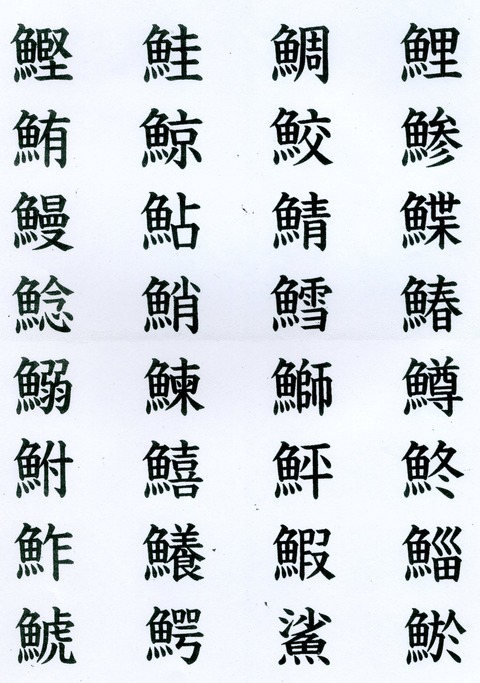 鰹 鮭 鯛 鯉
鮪 鯨 鮫 鯵
鰻 鮎 鯖 鰈
鯰 鮹 鱈 鰆
鰯 鰊 鰤 鱒
鮒 鱚 鮃 鮗
鮓 鱶 鰕 鯔
鯱 鰐 鯊 鯲